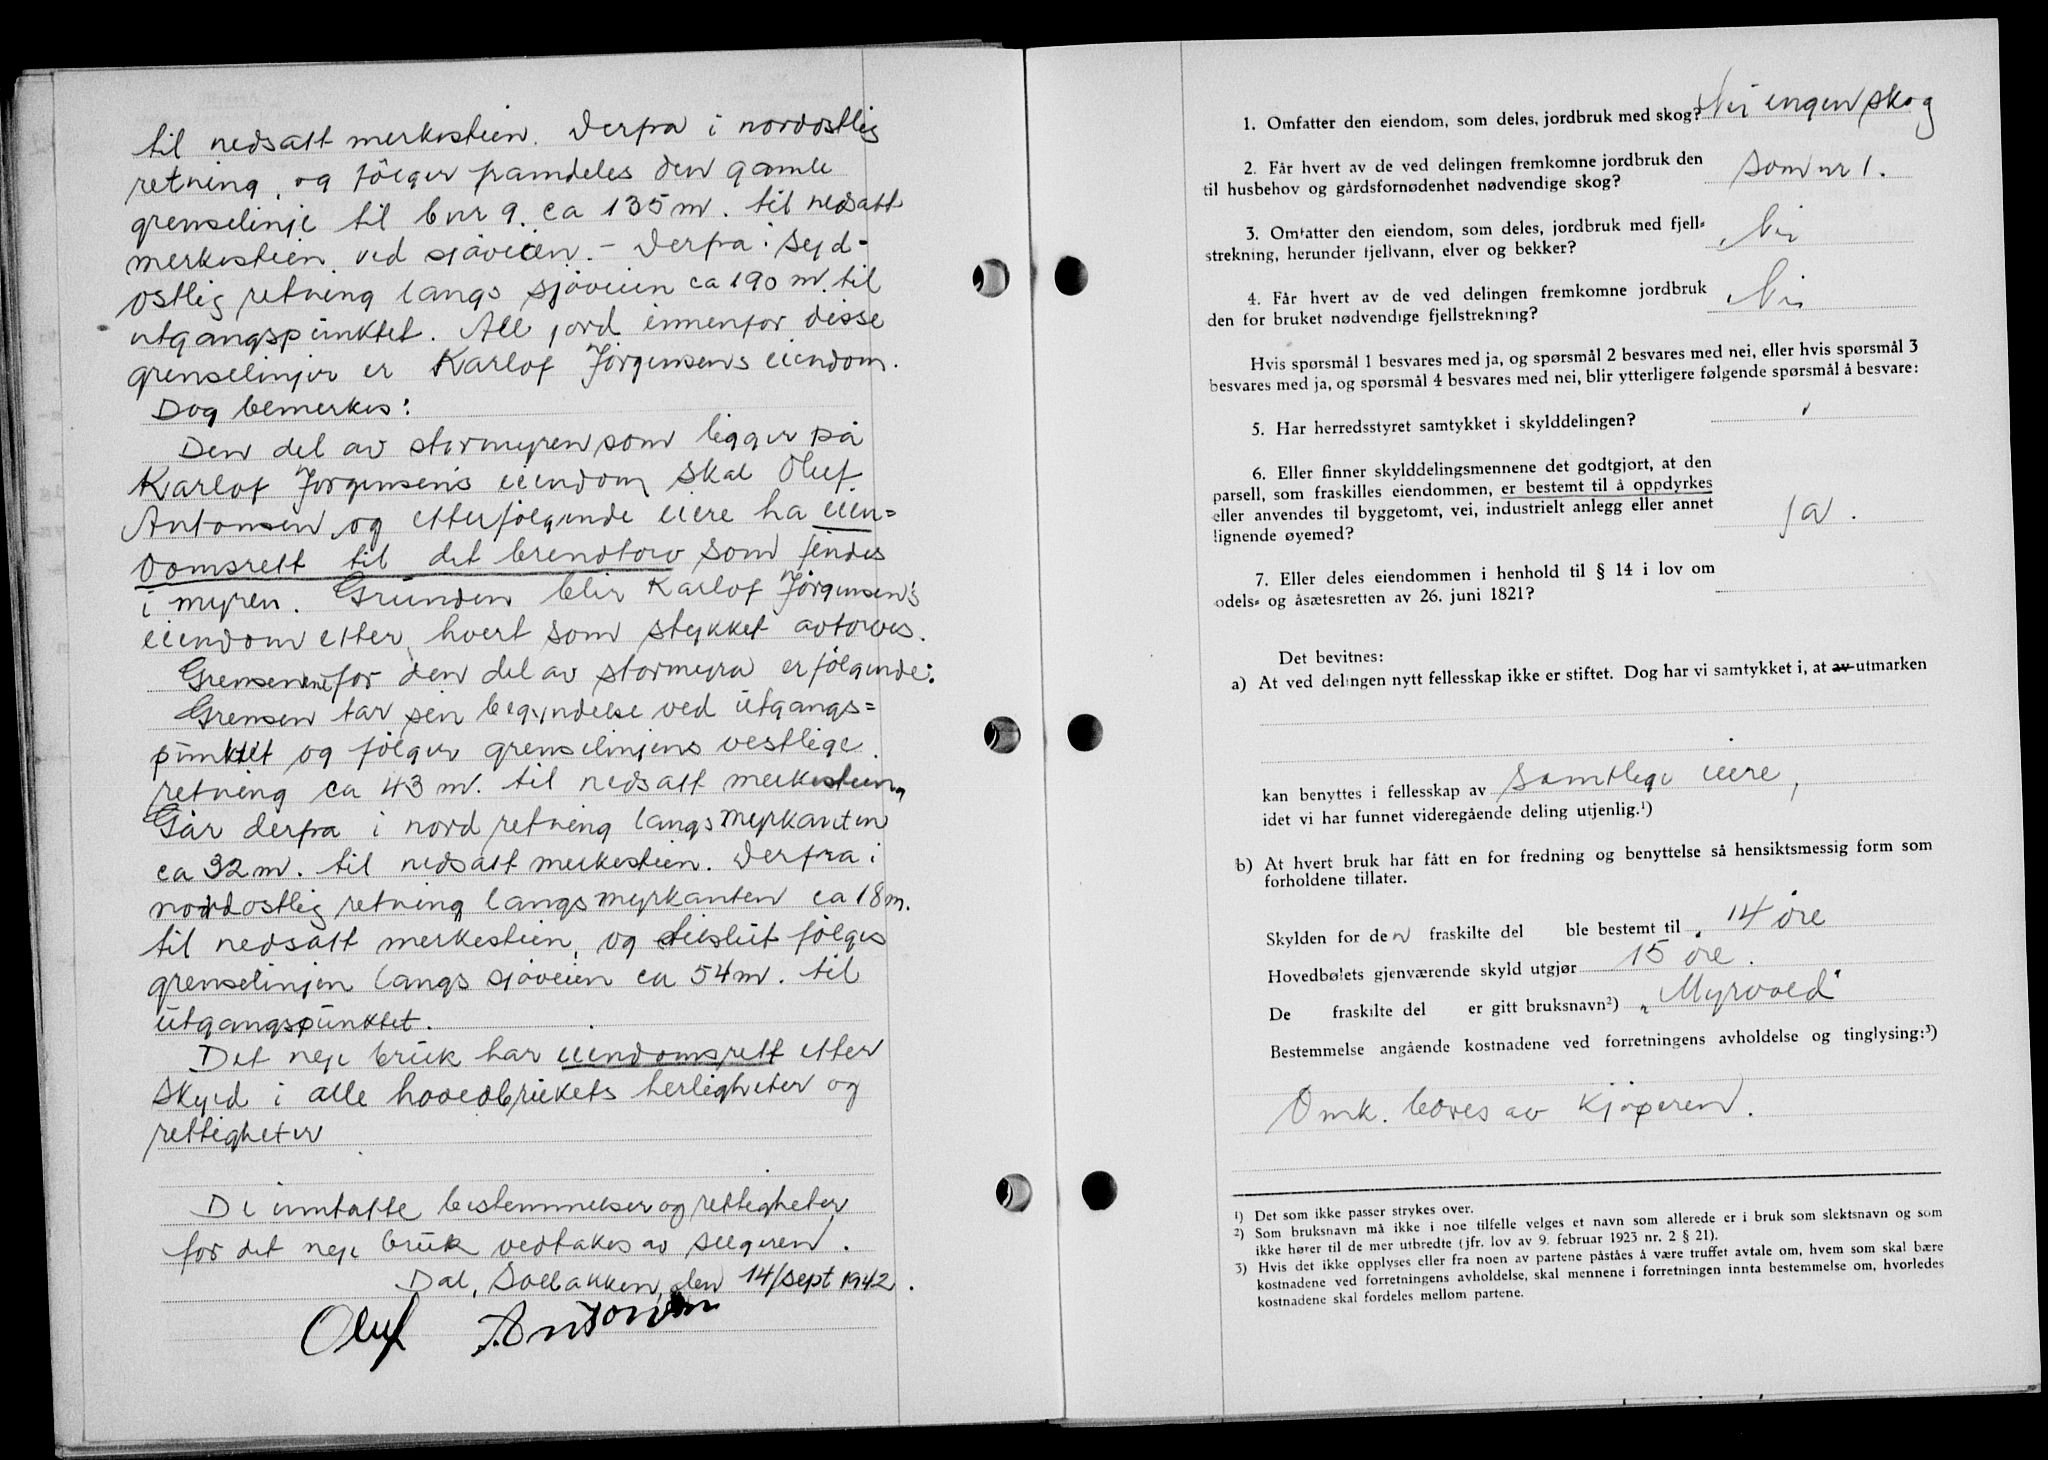 til nedsatt merkestein. Derfra i nordøstlig
retning, og følger framdeles den gamle
grenselinje til bnr 9. ca 135 m. til nedsatt
merkestein ved sjøveien. - Derfra i syd-
ostlig retning langs sjøveien ca 190 m. til
utgangspunktet. All jord innenfor disse
grenselinjer er Karlof Jørgensens eiendom.
Dog bemerkes:
Den del av stormyren som ligger på
Karlof Jørgensens eiendom skal Oluf
Antonsen og etterfølgende eiere ha eien=
domsrett til det brendtorv som findes
i myren. Grunden blir Karlof Jørgensen's
eiendom etter hvert som stykket avtorves.
Grensene for den del av stormyra er følgende:
Grensen tar sin begyndelse ved utgangs=
punktet og følger grenselinjens vestlige
retning ca 43 m. til nedsatt merkestein,
Går derfra i nord retning langs myrkanten
ca 32 m. til nedsatt merkestein. Derfra i
nordostlig retning langs myrkanten ca 18 m.
til nedsatt merkestein, og tilslut følges
grenselinjen langs sjøveien ca 54 m. til
utgangspunktet.
Det nye bruk har eiendomsrett etter
skyld i alle hovedbrukets herligheter og
rettigheter
De inntatte bestemmelser og rettigheter
for det nye bruk vedtakes av selgeren.
Dal, Solbakken, den 14/sept 1942.
Oluf Antonsen
1. Omfatter den eiendom, som deles, jordbruk med skog? Nei ingen skog
2. Får hvert av de ved delingen fremkomne jordbruk den
til husbehov og gårdsfornødenhet nødvendige skog? som nr 1.
3. Omfatter den eiendom, som deles, jordbruk med fjell=
strekning, herunder fjellvann, elver og bekker? Nei
4. Får hvert av de ved delingen fremkomne jordbruk
den for bruket nødvendige fjellstrekning? Nei
Hvis spørsmål 1 besvares med ja, og spørsmål 2 besvares med nei, eller hvis spørsmål 3
besvares med ja, og spørsmål 4 besvares med nei, blir ytterligere følgende spørsmål å besvare:
5. Har herredsstyret samtykket i skylddelingen?
6. Eller finner skylddelingsmennene det godtgjort, at den
parsell, som fraskilles eiendommen, er bestemt til å oppdyrkes
eller anvendes til byggetomt, vei, industrielt anlegg eller annet
lignende øyemed? Ja.
7. Eller deles eiendommen i henhold til § 14 i lov om
odels= og åsætesretten av 26. juni 1821?
Det bevitnes:
a) At ved delingen nytt fellesskap ikke er stiftet. Dog har vi samtykket i, at av utmarken
kan benyttes i fellesskap av samtlige eiere,
idet vi har funnet videregående deling utjenlig.¹)
b) At hvert bruk har fått en for fredning og benyttelse så hensiktsmessig form som
forholdene tillater.
Skylden for den fraskilte del ble bestemt til 14 øre
Hovedbølets gjenværende skyld utgjør 15 øre.
De fraskilte del er gitt bruksnavn²) „Myrvold"
Bestemmelse angående kostnadene ved forretningens avholdelse og tinglysing:³)
Omk. bæres av kjøperen.
¹) Det som ikke passer strykes over.
²) Som bruksnavn må ikke i noe tilfelle velges et navn som allerede er i bruk som slektsnavn og som
ikke hører til de mer utbredte (jfr. lov av 9. februar 1923 nr. 2 § 21).
³) Hvis det ikke opplyses eller fra noen av partene påståes å være truffet avtale om, hvem som skal bære
kostnadene ved forretningens avholdelse, skal mennene i forretningen innta bestemmelse om, hvorledes
kostnadene skal fordeles mellom partene.